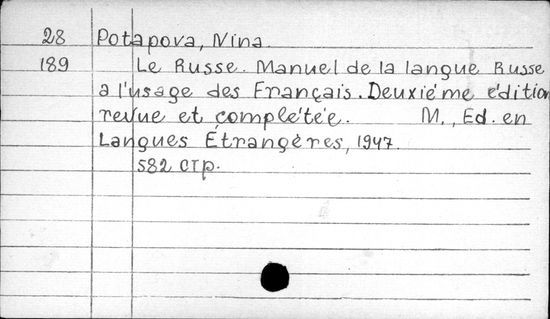 28 Potapova, Nina.
189 Le Russe. Manuel de la langue Russe
a l'usage des Français. Deuxiéme édition
revue et complétée. M., Ed. en
Langues Étrangères, 1947.
582 стр.